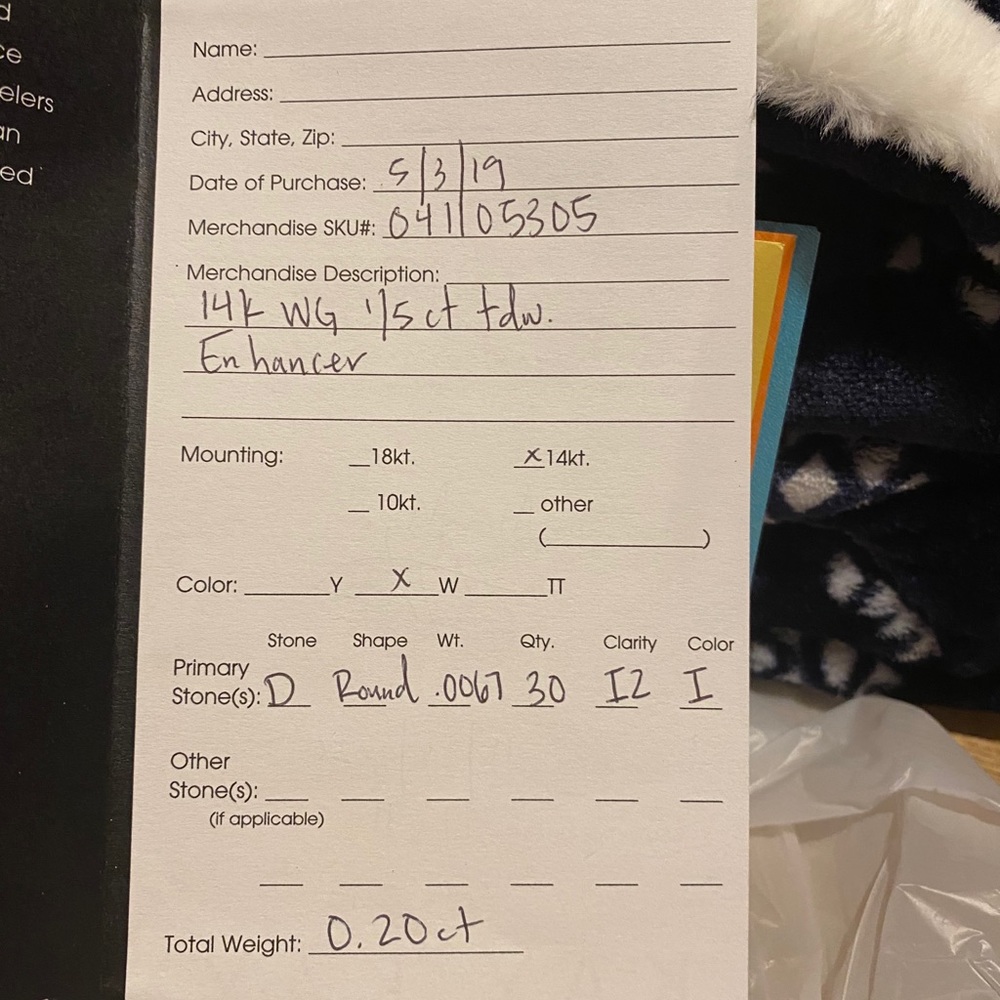 d
ce
elers
an
ed
Name:
Address:
City, State, Zip:
Date of Purchase: 5/3/19
Merchandise SKU#: 041105305
Merchandise Description:
14k WG 1/5 ct tdw.
Enhancer
Mounting: __18kt. X 14kt.
__ 10kt. __ other
(__________)
Color: ______Y __X__W ______TT
Stone Shape Wt. Qty. Clarity Color
Primary
Stone(s): D Round .0067 30 I2 I
Other
Stone(s):
(if applicable)
Total Weight: 0.20ct